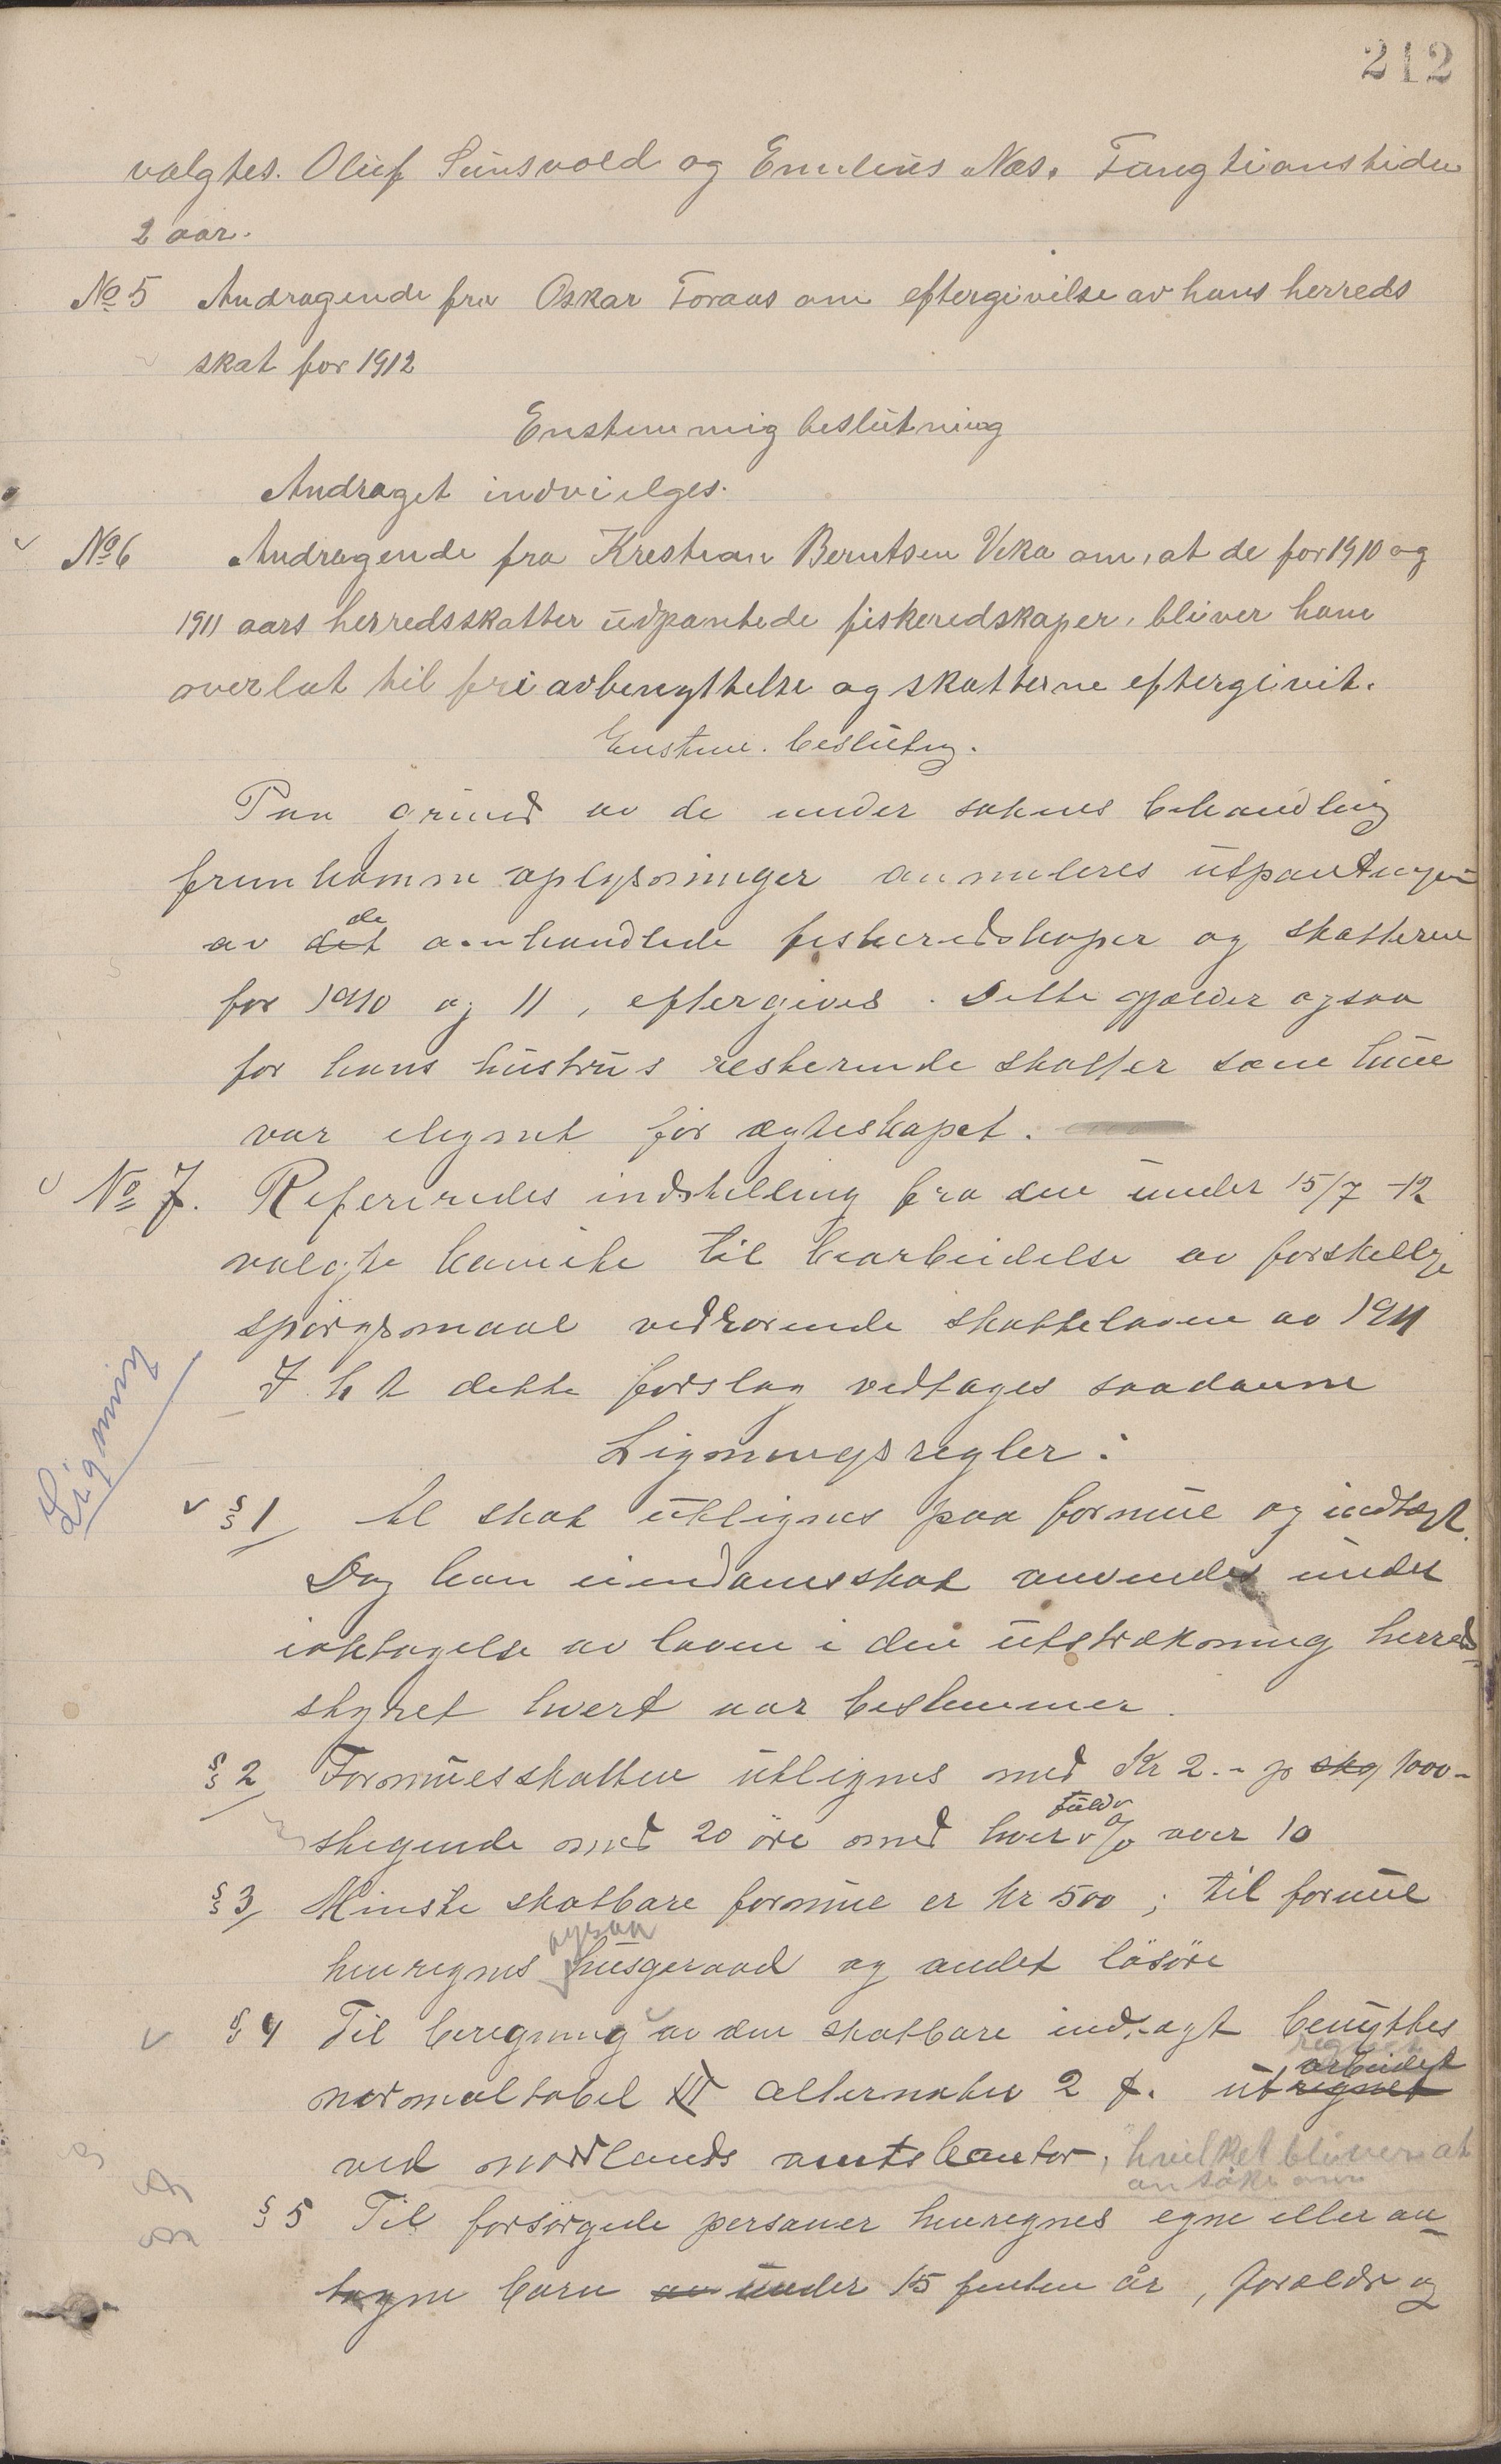 212
valgtes. Oluf Sunsvold og Emilius Næs. Fungtionstiden
2 aar.
No 5 Andragende fra Oskar Foraas om eftergivelse av hans herreds
skat for 1912
Enstemmig beslutning
Andraget indvielges.
No 6 Andragende fra Krestian Berntsen Vika om, at de for 1910 og
1911 aars herredsskatter udpantede fiskeredskaper, bliver ham
overlat til fri avbenyttelse og skatterne eftergivit.
Enstem. beslutng.
Paa grund av de under sakens behandling
fremkomne oplysninger annuleres utpantningen
av det de omhandlede fiskeredskaper og skatterne
for 1910 og 11, eftergives. Dette gjælder ogsaa
for hans hustrus resterende skatter som hun
var ilignet før ægteskapet.
No 7. Refereredes indstilling fra den under 15/7 -12
valgte komite til bearbeidelse av forskellige
spørgsmaal vedrørende skatteloven av 1911
I h t dette forslag vedtages saadanne
Ligningsregler:
Ligning
§ 1 Al skat utlignes paa formue og indtægt.
Dog kan eiendomsskat anvendes under
iaktagelse av loven i den utstrækning herreds
styret hvert aar bestemmer.
§ 2 Formuesskatten utlignes med Kr 2.- pr skg 1000-
stigende med 20 øre med hver fuld % over 10
§ 3 Minste skatbare formue er kr 500; til formue
henregnes ogsaa husgeraad og andet løsøre
§ 4 Til beregning av den skatbare indtægt benyttes
regnet
normaltabel III alternativ 2 f. utregnet arbeidet
ved nordlands amtskontor, hvilket bliver at
ansøke om
§ 5 Til forsørgede personer henregnes egne eller an
tagne barn av under 15 femten år, forældre og